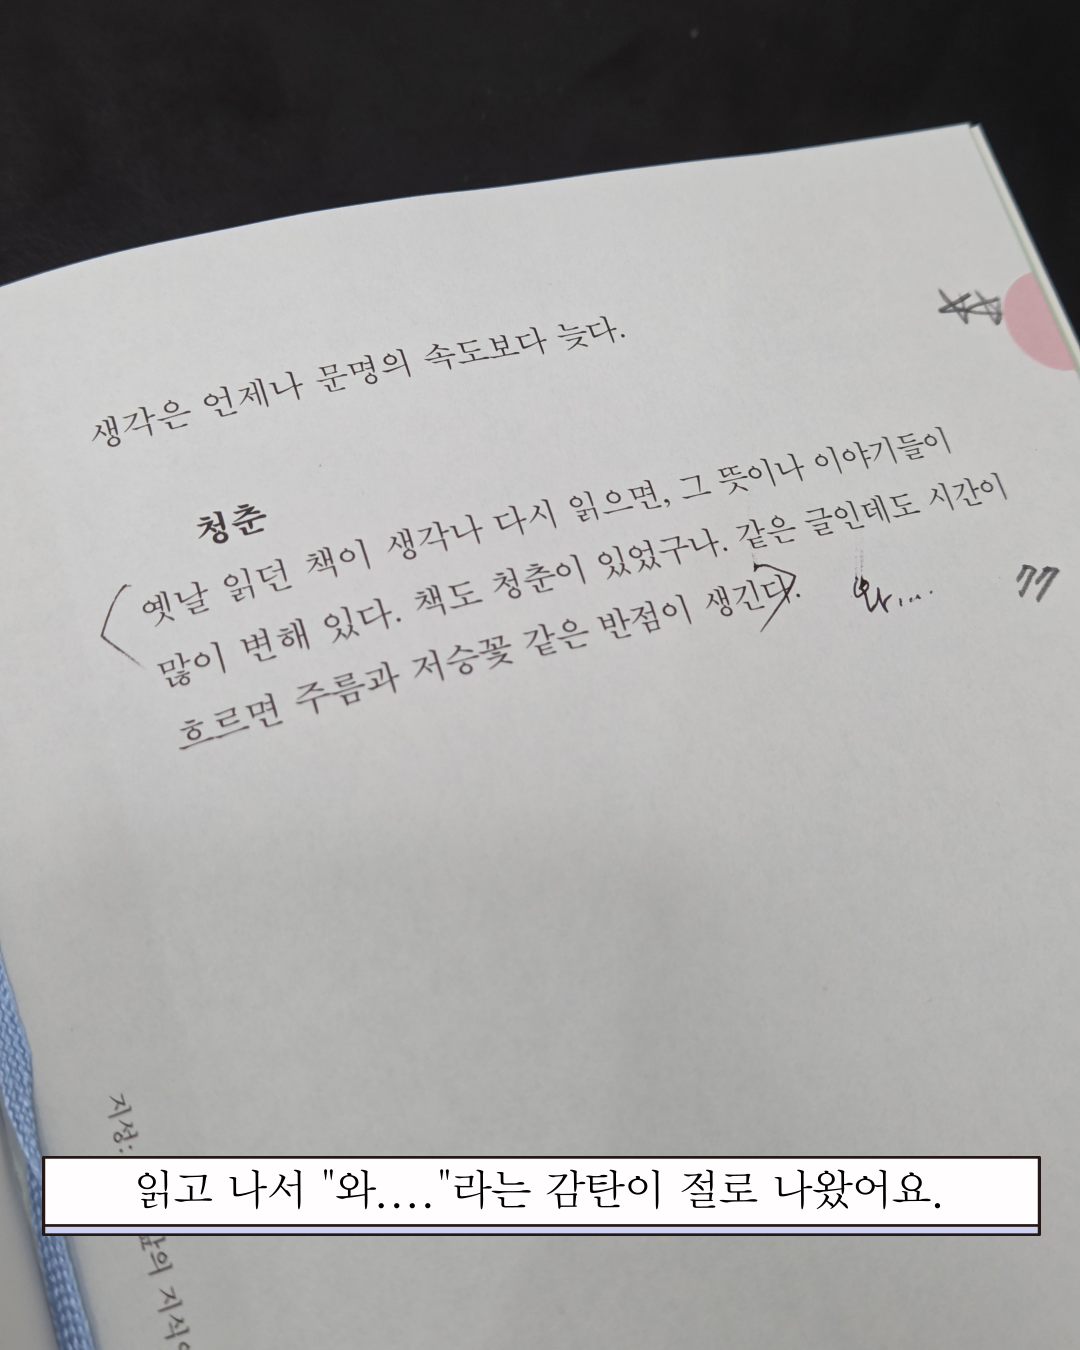 생각은 언제나 문명의 속도보다 늦다.
청춘
옛날 읽던 책이 생각나 다시 읽으면, 그 뜻이나 이야기들이
많이 변해 있다. 책도 청춘이 있었구나. 같은 글인데도 시간이
흐르면 주름과 저승꽃 같은 반점이 생긴다.
와....
77
지성:
의 지식
읽고 나서 "와...."라는 감탄이 절로 나왔어요.